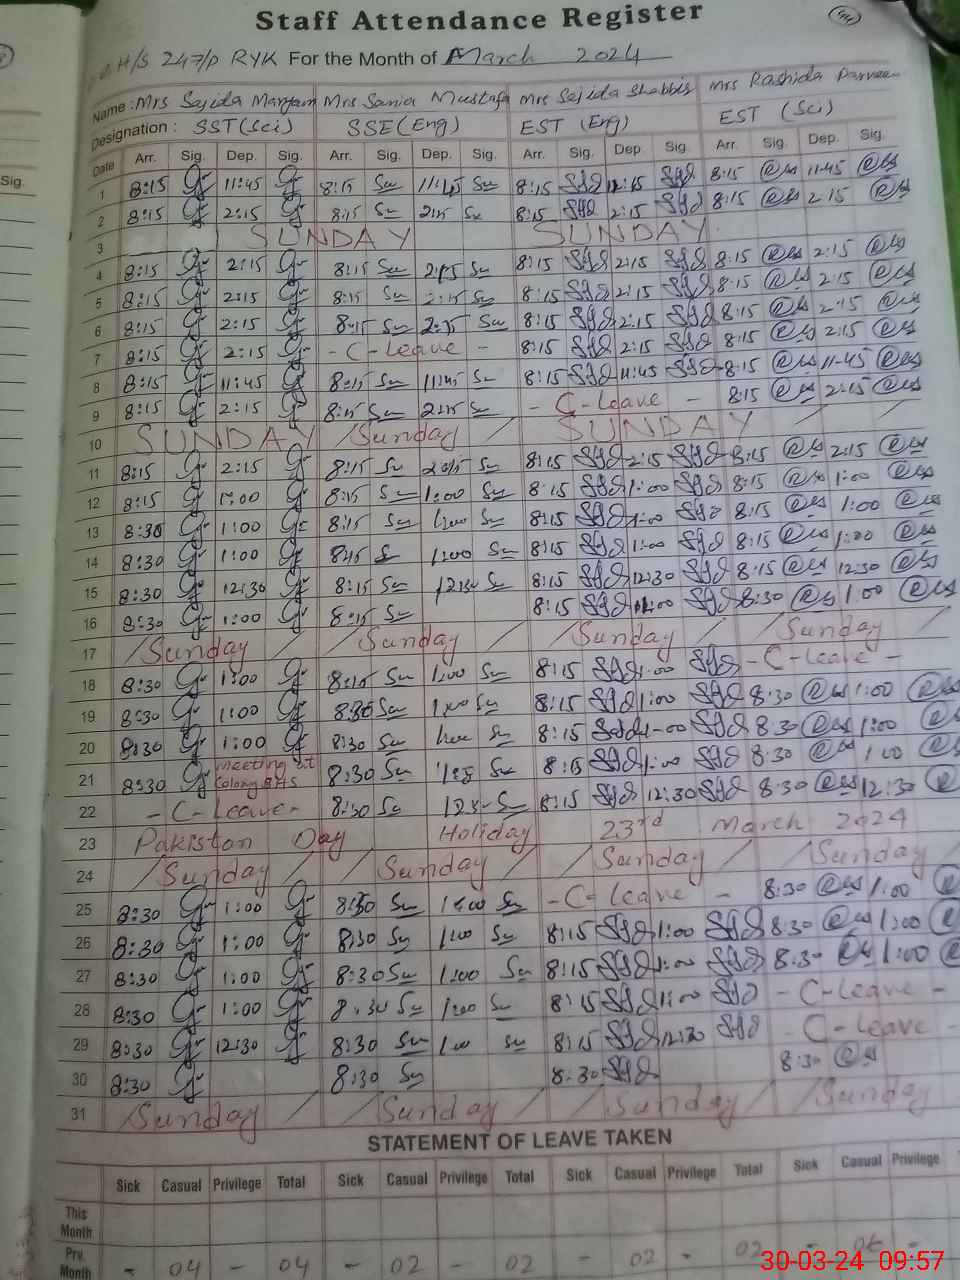 Staff Attendance Register
H/S 247/P RYK For the Month of March 2024
Name : Mrs Sajida Maryam Mrs Sania Mustafa Mrs Sajida Shabbir Mrs Rashida Parveen
Designation : SST(Sci) SSE(Eng) EST (Eng) EST (Sci)
Date Arr. Sig. Dep. Sig. Arr. Sig. Dep. Sig. Arr. Sig. Dep. Sig. Arr. Sig. Dep. Sig.
1 8:15 11:45 8:15 11:45 8:15 8:15 11:45
2 8:15 2:15 8:15 2:15 8:15 2:15 8:15 2:15
3 SUNDAY SUNDAY
4 8:15 2:15 8:15 2:15 8:15 2:15 8:15 2:15
5 8:15 2:15 8:15 2:15 8:15 2:15 8:15 2:15
6 8:15 2:15 8:15 2:15 8:15 2:15 8:15 2:15
7 8:15 2:15 - C-Leave - 8:15 2:15 8:15 2:15
8 8:15 11:45 8:15 11:45 8:15 11:45 8:15 11:45
9 8:15 2:15 8:15 2:15 - C-Leave - 8:15 2:15
10 SUNDAY /Sunday/ SUNDAY /
11 8:15 2:15 8:15 2:15 8:15 2:15 8:15 2:15
12 8:15 1:00 8:15 1:00 8:15 1:00 8:15 1:00
13 8:30 1:00 8:15 1:00 8:15 1:00 8:15 1:00
14 8:30 1:00 1:00 8:15 1:00 8:15 1:00
15 8:30 12:30 8:15 12:30 8:15 12:30 8:15 12:30
16 8:30 1:00 8:15 8:15 8:30 1:00
17 /Sunday / Sunday / Sunday / Sunday /
18 8:30 1:00 8:15 1:00 8:15 1:00 - C-Leave -
19 8:30 1:00 8:30 1:00 8:15 1:00 8:30 1:00
20 8:30 1:00 8:30 1:00 8:15 1:00 8:30 1:00
21 8:30 meeting at Colony GHS 8:30 8:15 1:00 8:30 1:00
22 - C-Leave - 8:30 8:15 12:30 8:30 12:30
23 Pakistan Day Holiday 23rd March 2024
24 /Sunday / Sunday / Sunday / Sunday
25 8:30 1:00 8:30 1:00 - C-Leave - 8:30 1:00
26 8:30 1:00 8:30 1:00 8:15 1:00 8:30 1:00
27 8:30 1:00 8:30 1:00 8:15 1:00 8:30 1:00
28 8:30 1:00 8:30 1:00 8:15 1:00 - C-Leave -
29 8:30 12:30 8:30 1:00 8:15 12:30 - C-Leave -
30 8:30 8:30 8:30 8:30
31 /Sunday / Sunday / Sunday / Sunday
STATEMENT OF LEAVE TAKEN
Sick Casual Privilege Total Sick Casual Privilege Total Sick Casual Privilege Total Sick Casual Privilege
This Month
Prv. Month - 04 - 04 - 02 - 02 - 02 - 02 -
30-03-24 09:57
Sig.